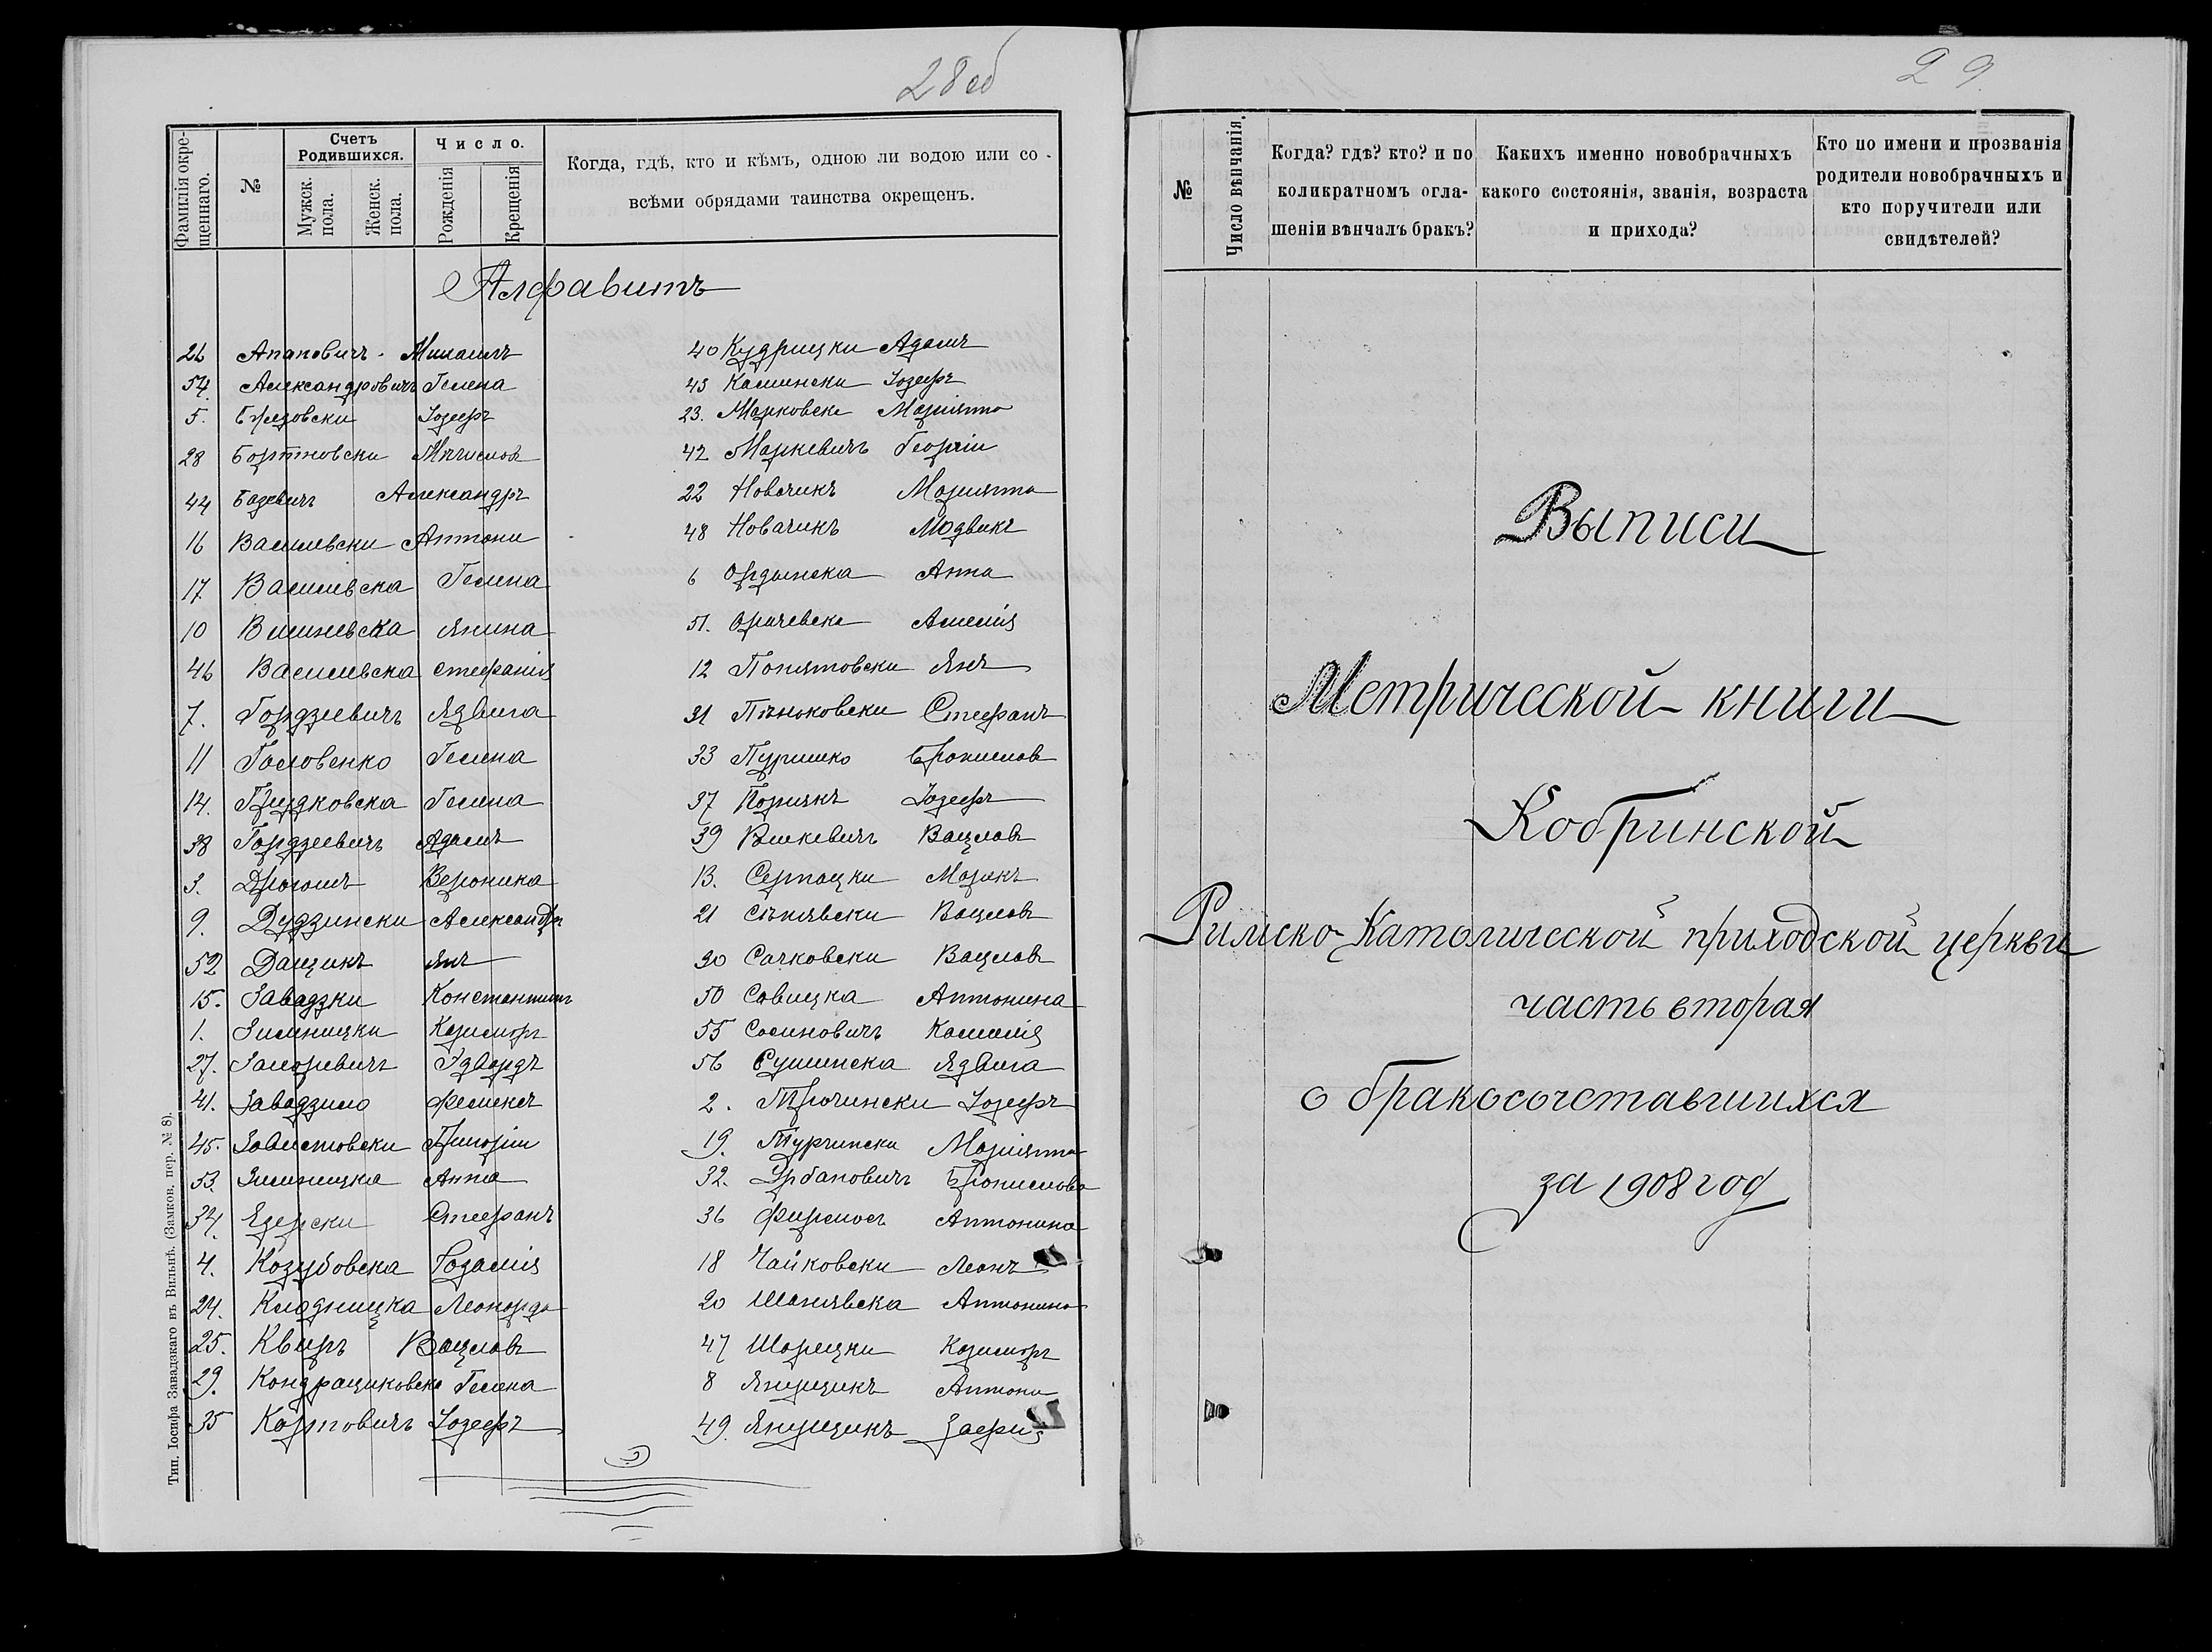 28 об
Фамилія окре-
щеннаго.
№
Счетъ
Родившихся.
Мужск.
пола.
Женск.
пола.
Число.
Рожденія
Крещенія
Когда, гдѣ, кто и кѣмъ, одною ли водою или со
всѣми обрядами таинства окрещенъ.
Алфавитъ
26 Апановичъ Михаилъ
54. Александровичъ Гелена
5. Бржезовски Іозефъ
28 Бортновски Мѣчислов
44 Базевичъ Александръ
16 Василевски Антони
17 Василевска Гелена
10 Вишневска Янина
46 Василевска Стефанія
7. Гордзеевичъ Ядвига
11 Головенко Гелена
14. Гриздковска Гелена
38 Гордзеевичъ Адамъ
3. Дрогошъ Вероника
9. Дудзински Александръ
52 Дащикъ Янъ
15. Завадзки Константинъ
1. Зимницки Казимиръ
27. Заморевичъ Эдвардъ
41. Завадзило Феликсъ
45. Завистовски Григорій
53. Зимницка Анна
34. Езерски Стефанъ
4. Козубовска Розалія
24. Кладницка Леокарда
25. Квиръ Вацлавъ
29. Кондрациковска Гелена
35 Картовичъ Іозефъ
40 Кудрицки Адамъ
43 Камински Іозефъ
23. Марковска Маріянна
42 Маркевичъ Георгій
22 Новачикъ Маріянна
48 Новачикъ Людвикъ
6 Ордынска Анна
51. Оричевска Амелія
12 Понятовски Янъ
31 Пѣньковски Стефанъ
33 Пуришко Брониславъ
37 Порицкъ Іозефъ
39 Рымкевичъ Вацлавъ
13. Серпацки Маріянъ
21 Сѣнявски Вацлавъ
30 Сачковски Вацлавъ
50 Савицка Антонина
55 Сасиновичъ Камилія
56 Сушинска Ядвига
2. Трочински Іозефъ
19. Турчинска Маріянна
32. Урбановичъ Бронислава
36 Фирсюсъ Антонина
18 Чайковски Леонъ
20 Шанявска Антонина
47 Шарецки Казимиръ
8 Янущикъ Антони
49. Янущикъ Зофія
Тип. Іосифа Завадзкаго въ Вильнѣ. (Замков. пер. № 8).
29.
№
Число вѣнчанія.
Когда? гдѣ? кто? и по
коликратномъ огла-
шеніи вѣнчалъ бракъ?
Какихъ именно новобрачныхъ
какого состоянія, званія, возраста
и прихода?
Кто по имени и прозванія
родители новобрачныхъ и
кто поручители или
свидѣтелей?
Выписи
Метрической книги
Кобринской
Римско-Католической приходской церкви
часть вторая
о бракосочетавшихся
за 1908 год